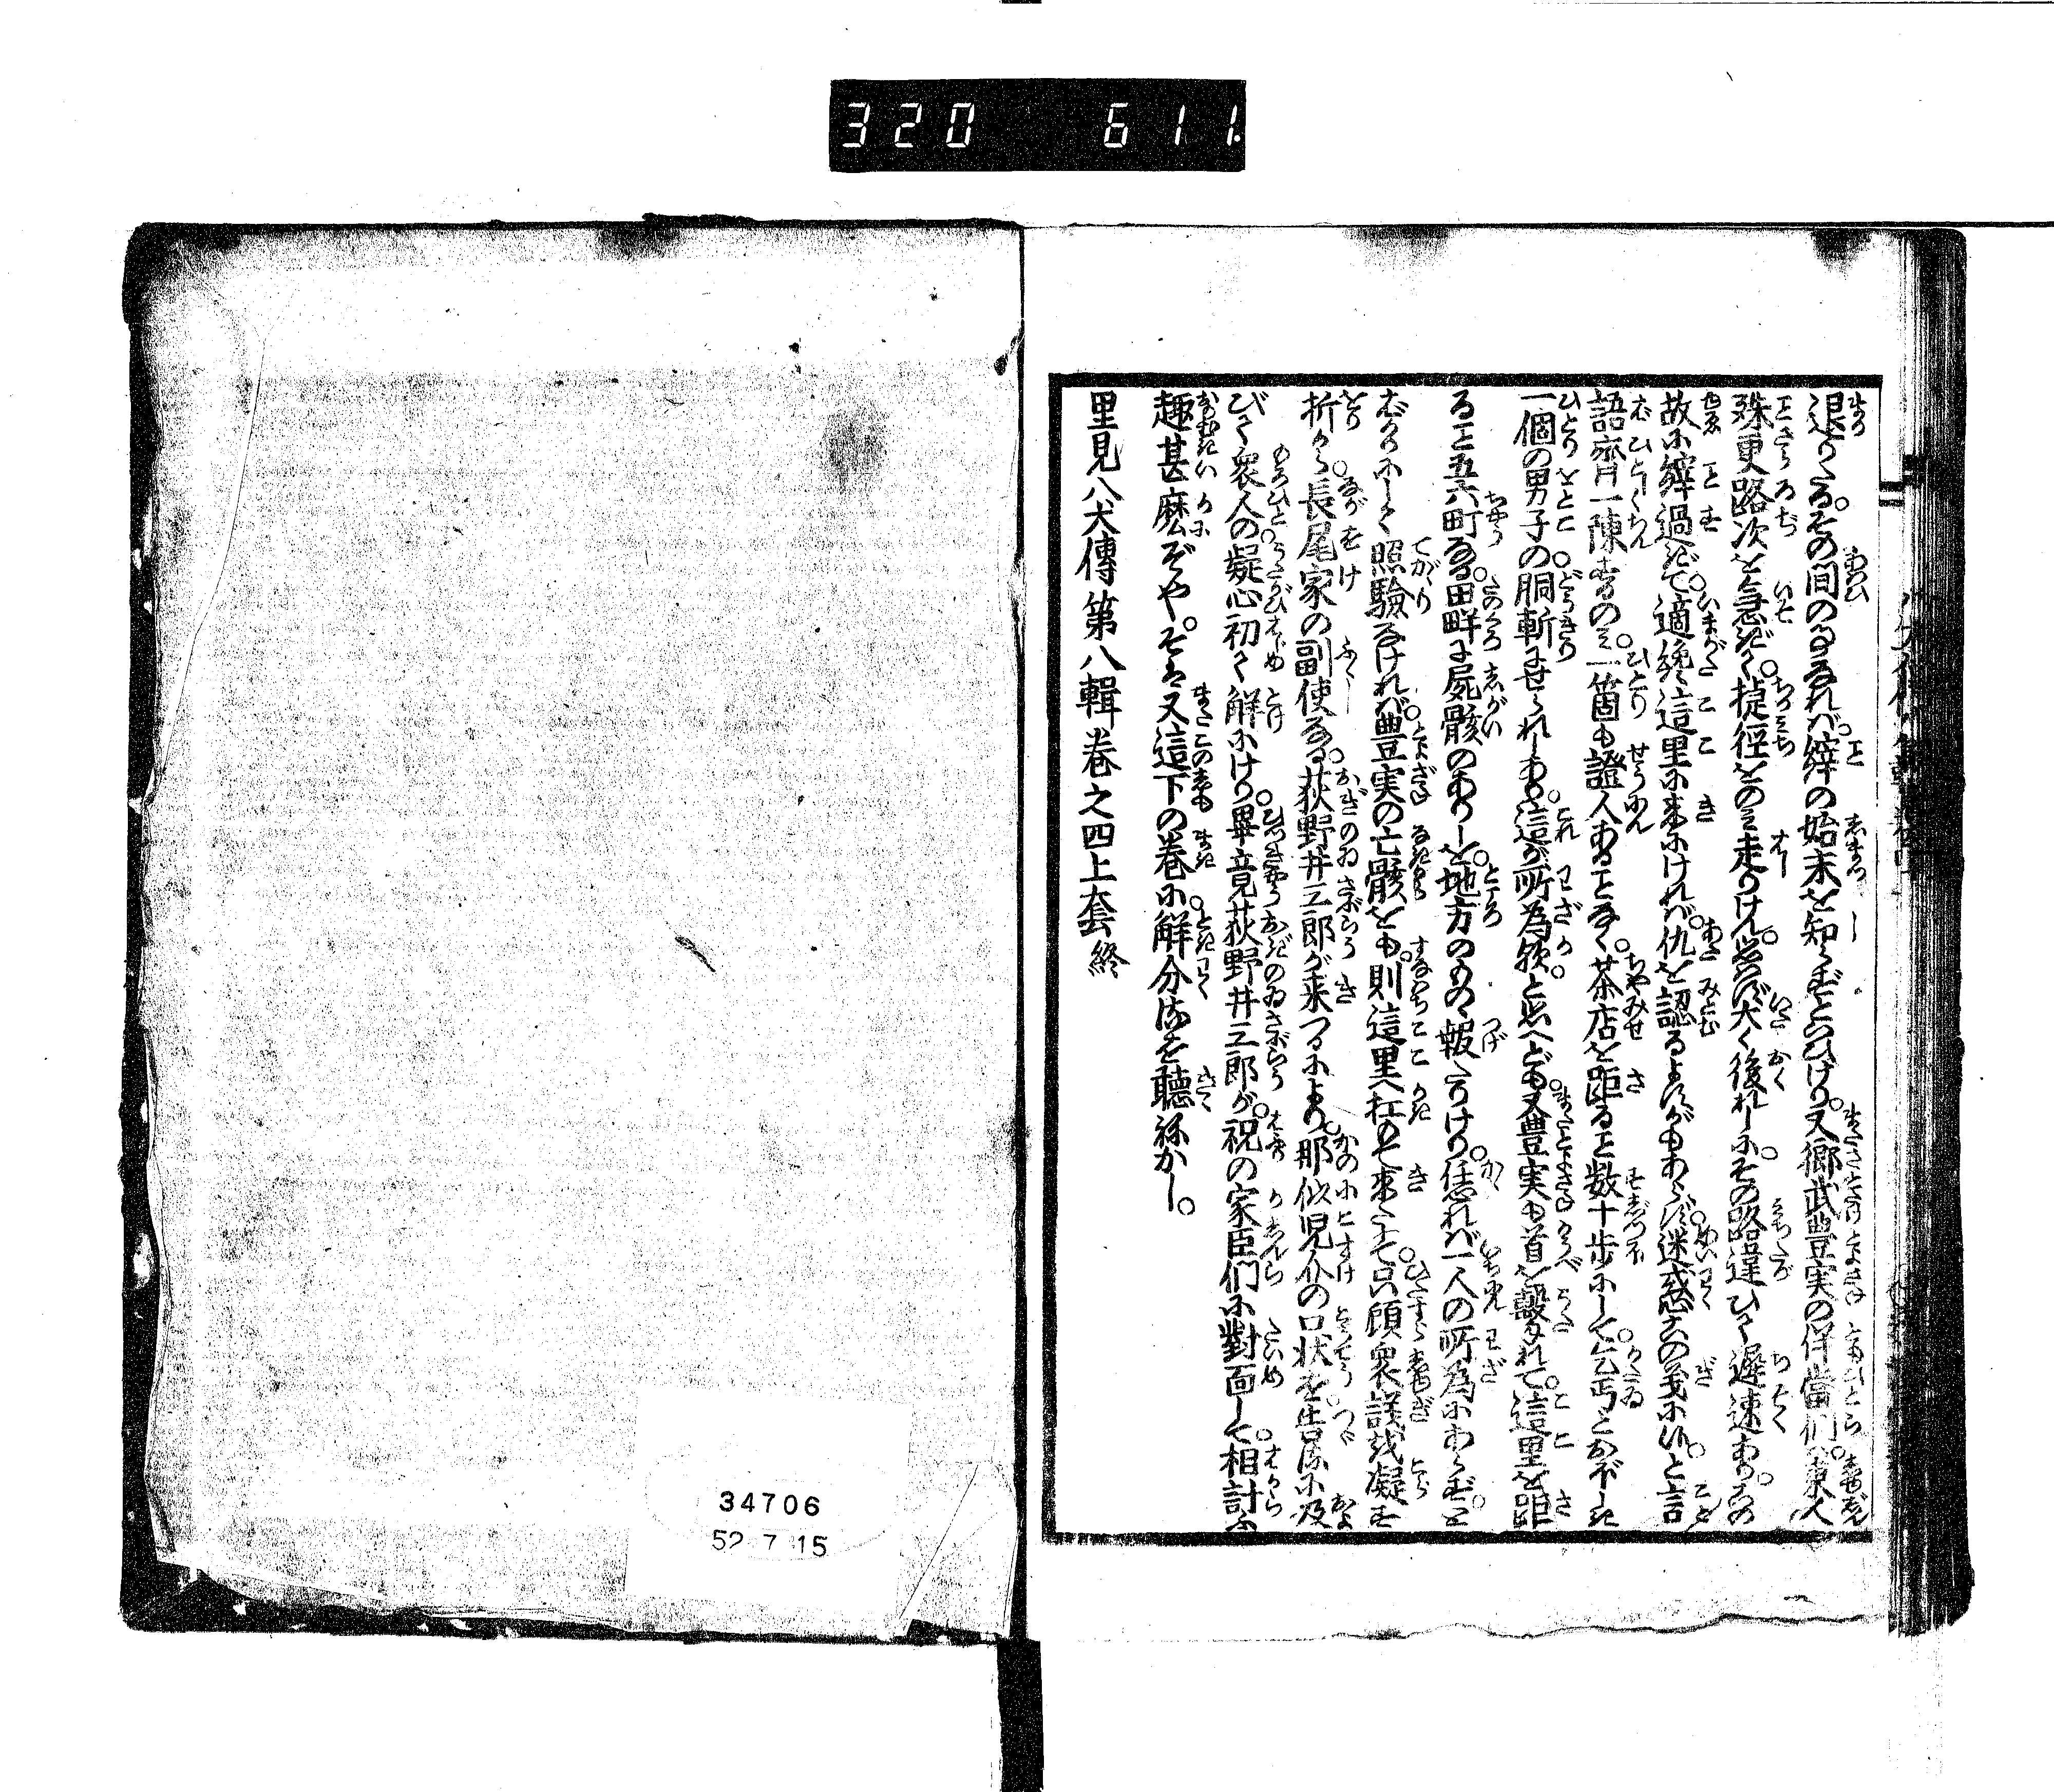 320 611
退りたる。その間の事なれば、縡の始末を知らずといひけり。又郷武豊実の伴當們は、衆人
殊更路次を急ぎて、捷径をのみ走りけん。些ばかり後れしに、その路違ひて遅速あり。この
故に縡過ぎて、適纔這里に来にければ、仇を認るよすがもあらず。迷惑この義に候。と言
語齊一陳するのみ。一箇も證人あることなく、茶店を距ること数十歩にして、乞丐とおぼしき
一個の男子の胴斬にせられしあり。這が所為欤。と思へども、又豊実も首を撃れて、這里を距
ること五六町なる、田畔に屍骸のありしを、地方のもの報たりけり。恁れば一人の所為にあらず。と
ばかりにして照驗なければ、豊実の亡骸をも、則這里へ扛もて来たして、只顧衆議を凝す
折から、長尾家の副使なる、荻野井三郎が来つるにより、那似児介の口状を告るに及
びて、衆人の疑心初て解にけり。畢竟荻野井三郎が、祝の家臣們に對面して、相計ふ
趣甚麼ぞや。そは又這下の巻に、解分るを聴ねかし。
里見八犬傳第八輯巻之四上套終
34706
52 7 15